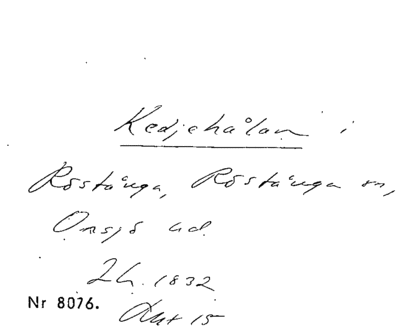 Kedjehålan i
Röstånga, Röstånga sn,
Onsjö hd.
2h. 1832
Nr 8076.
Akt 15